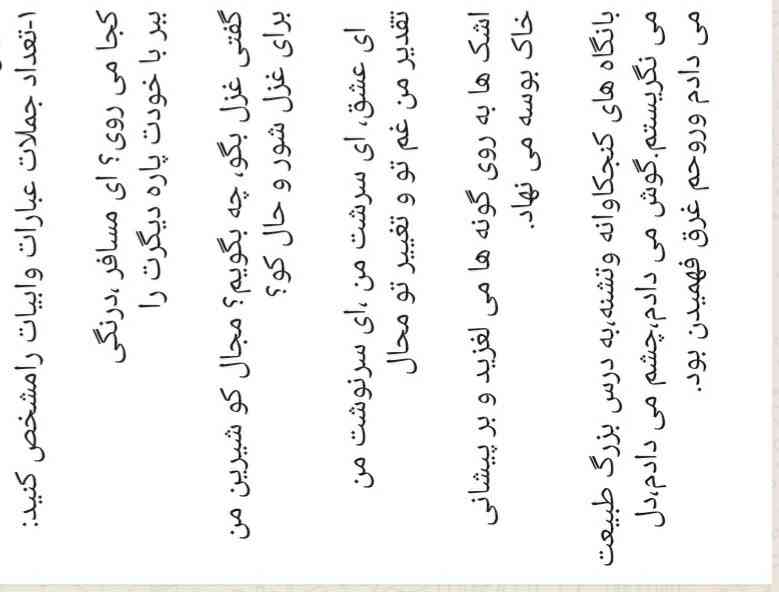 ۱-تعداد جملات عبارات وابیات رامشخص کنید:
کجا می روی؟ ای مسافر ،درنگی
ببر با خودت پاره دیگرت را
گفتی غزل بگو، چه بگویم؟ مجال کو شیرین من
برای غزل شور و حال کو؟
ای عشق، ای سرشت من ،ای سرنوشت من
تقدیر من غم تو و تغییر تو محال
اشک ها به روی گونه ها می لغزید و بر پیشانی
خاک بوسه می نهاد.
بانگاه های کنجکاوانه وتشنه،به درس بزرگ طبیعت
می نگریستم.گوش می دادم،چشم می دادم،دل
می دادم وروحم غرق فهمیدن بود.